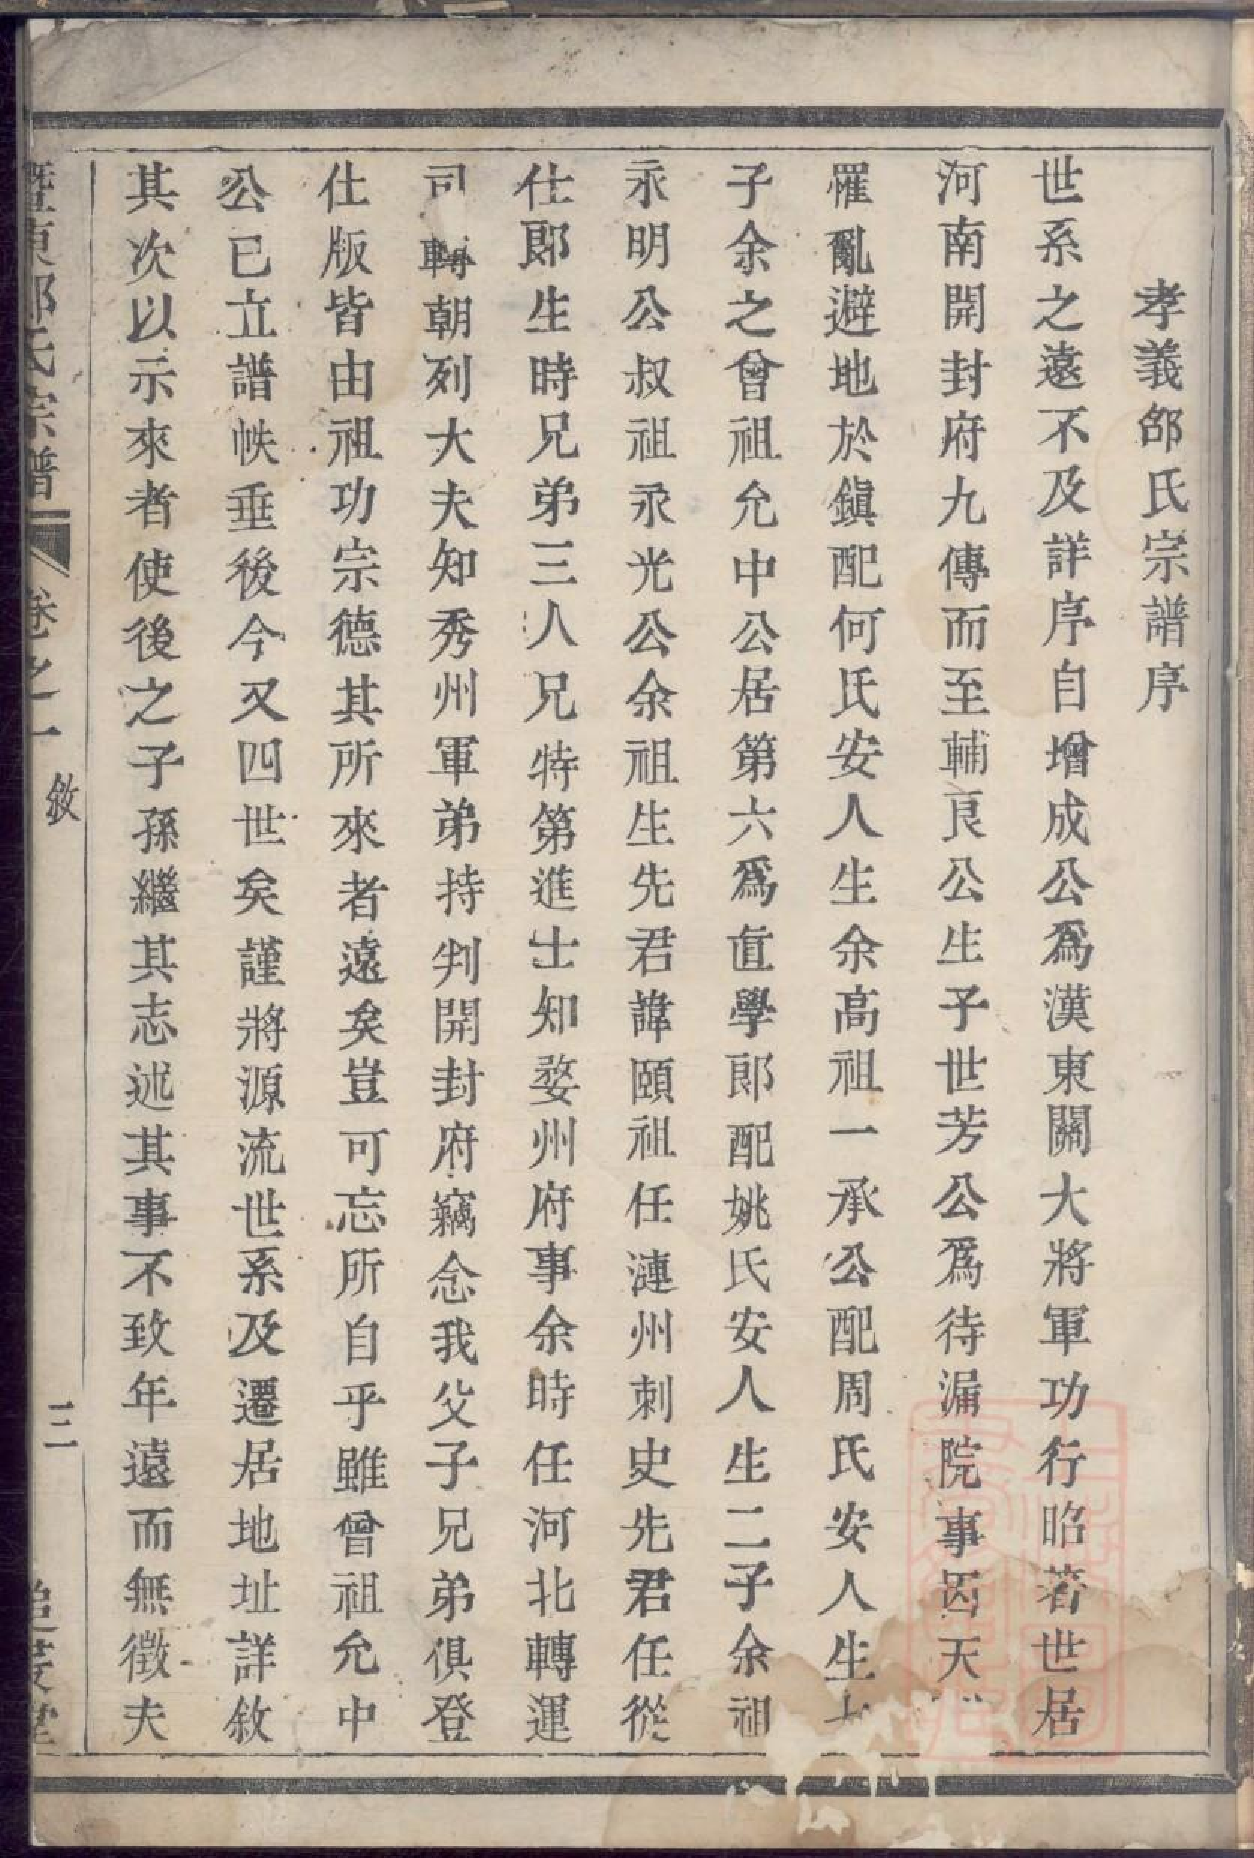 孝義邵氏宗譜序
世系之遠不及詳序自增成公爲漢東關大將軍功行昭若世居
河南開封府九傳而至輔良公生子世芳公爲待漏院事因天
罹亂避地於鎭配何氏安人生余高祖一承公配周氏安人生七
子余之曾祖允中公居第六爲直學郎配姚氏安人生二子余祖
永明公叔祖永光公余祖生先君諱頤祖任漣州刺史先君任從
仕郎生時兄弟三人兄特第進士知婺州府事余時任河北轉運
司轉朝列大夫知秀州軍弟持判開封府竊念我父子兄弟俱登
仕版皆由祖功宗德其所來者遠矣豈可忘所自乎雖曾祖允中
公已立譜帙垂後今又四世矣謹將源流世系及遷居地址詳敘
其次以示來者使後之子孫繼其志述其事不致年遠而無徵夫
暨東邵氏宗譜 卷之一 敘 三